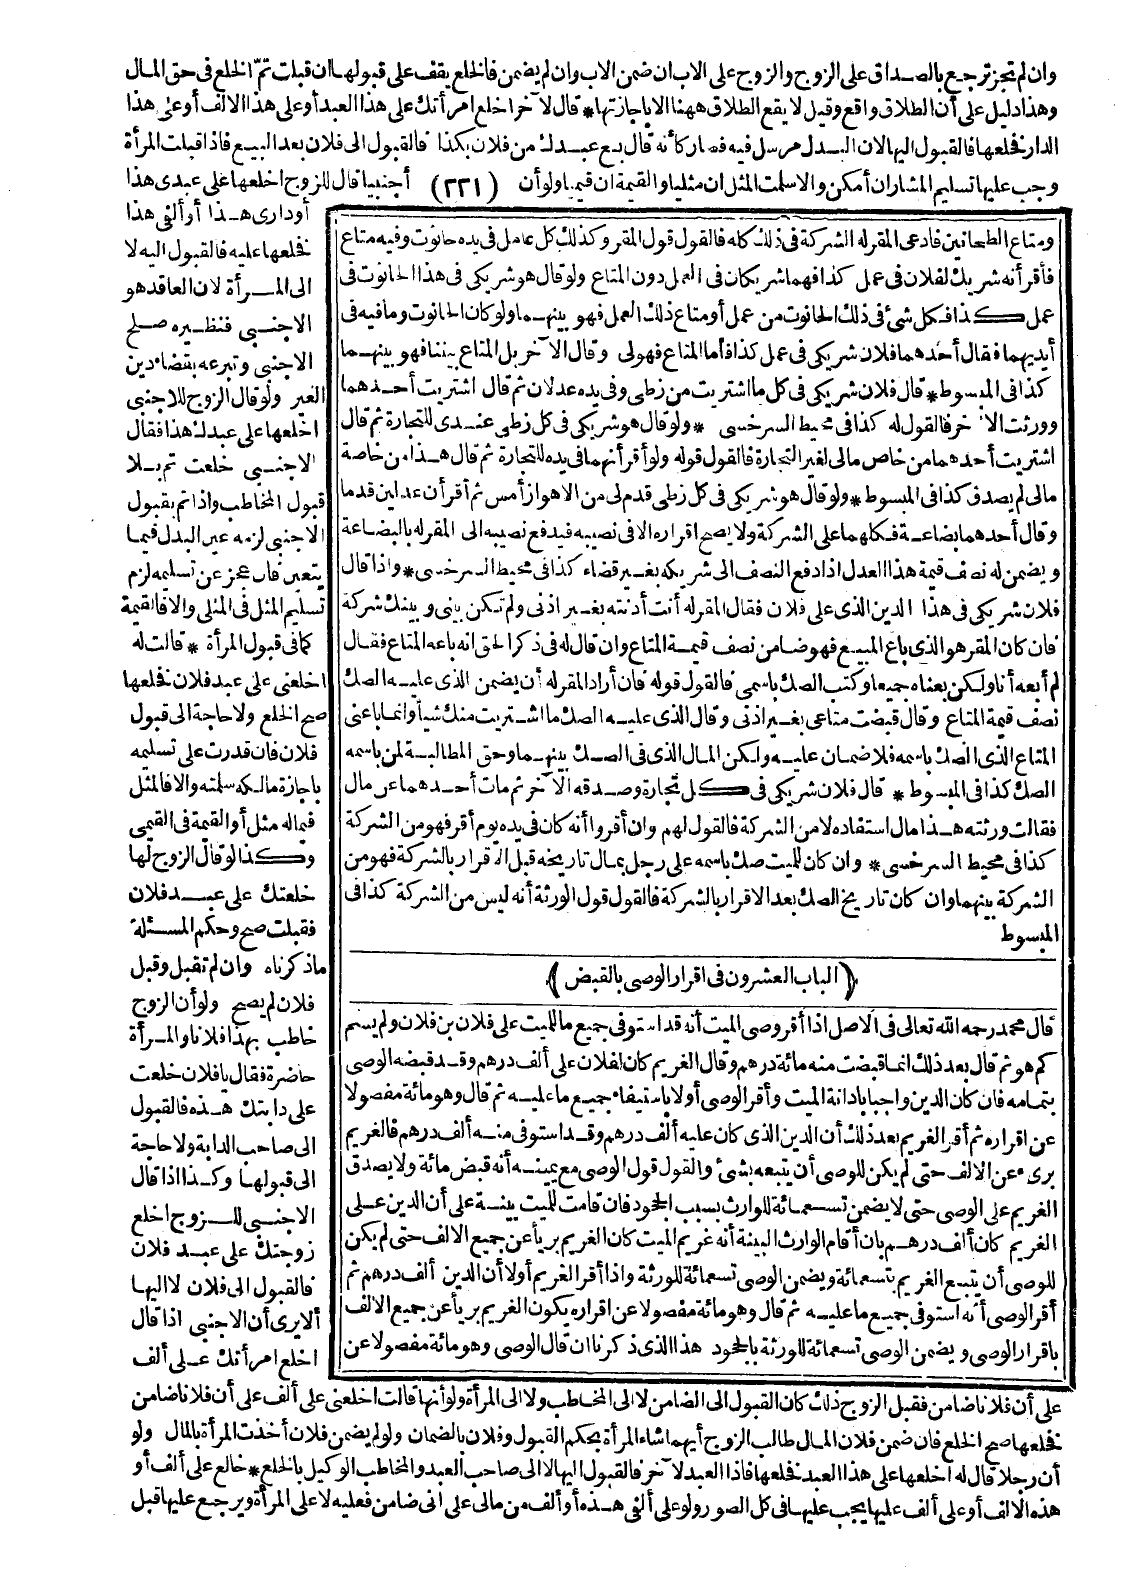 وان لم تجز ترجع بالصداق على الزوج والزوج على الاب ان ضمن الاب وان لم يضمن فالخلع يقف على قبولها ان قبلت تم الخلع فى حق المال
وهذا دليل على أن الطلاق واقع وقيل لا يقع الطلاق ههنا الا باجازتها * قال لآخر اخلع امرأتك على هذا العبد أو على هذا الالف أو على هذا
الدار فخلعها فالقبول اليها لان البدل مرسل فيه فصار كأنه قال بع عبدك من فلان بكذا فالقبول الى فلان بعد البيع فاذا قبلت المرأة
وجب عليها تسليم المشار ان أمكن والا سلمت المثل ان مثليا والقيمة ان قيميا ولو أن (٢٣١) أجنبيا قال للزوج اخلعها على عبدى هذا
أو دارى هذا أو ألفى هذا
فخلعها عليه فالقبول اليه لا
الى المرأة لان العاقد هو
الاجنبى فنظيره صلح
الاجنبى وتبرعه بقضاء دين
الغير ولو قال الزوج للاجنبى
اخلعها على عبدك هذا فقال
الاجنبى خلعت تم بلا
قبول المخاطب واذا تم بقبول
الاجنبى لزمه عين البدل فيما
يتعين فان عجز عن تسليمه لزم
تسليم المثل فى المثلى والا فالقيمة
كما فى قبول المرأة * قالت له
اخلعنى على عبد فلان فخلعها
صح الخلع ولا حاجة الى قبول
فلان فان قدرت على تسليمه
باجازة مالكه سلمته والا فالمثل
فيما له مثل أو القيمة فى القيمى
وكذا لو قال الزوج لها
خلعتك على عبد فلان
فقبلت صح وحكم المسئلة
ماذكرناه وان لم تقبل وقبل
فلان لم يصح ولو أن الزوج
خاطب بهذا فلانا والمرأة
حاضرة فقال يا فلان خلعت
على دابتك هذه فالقبول
الى صاحب الدابة ولا حاجة
الى قبولها وكذا اذا قال
الاجنبى للزوج اخلع
زوجتك على عبد فلان
فالقبول الى فلان لا اليها
ألا يرى أن الاجنبى اذا قال
اخلع امرأتك على ألف
ومتاع الطحانين فادعى المقر له الشركة فى ذلك كله فالقول قول المقر وكذلك كل عامل فى يده حانوت وفيه متاع
فأقر أنه شريك لفلان فى عمل كذا فهما شريكان فى العمل دون المتاع ولو قال هو شريكى فى هذا الحانوت فى
عمل كذا فكل شئ فى ذلك الحانوت من عمل أو متاع ذلك العمل فهو بينهما ولو كان الحانوت وما فيه فى
أيديهما فقال أحدهما فلان شريكى فى عمل كذا فأما المتاع فهولى وقال الآخر بل المتاع بيننا فهو بينهما
كذا فى المبسوط * قال فلان شريكى فى كل ما اشتريت من زطى وفى يده عدلان ثم قال اشتريت أحدهما
وورثت الآخر فالقول له كذا فى محيط السرخسى * ولو قال هو شريكى فى كل زطى عندى للتجارة ثم قال
اشتريت أحدهما من خاص مالى لغير التجارة فالقول قوله ولو أقر أنهما فى يده للتجارة ثم قال هذا من خاصة
مالى لم يصدق كذا فى المبسوط * ولو قال هو شريكى فى كل زطى قدم لى من الاهواز أمس ثم أقر أن عدلين قدما
وقال أحدهما بضاعة فكلهما على الشركة ولا يصح اقراره الا فى نصيبه فيدفع نصيبه الى المقر له بالبضاعة
ويضمن له نصف قيمة هذا العدل اذا دفع النصف الى شريكه بغير قضاء كذا فى محيط السرخسى * واذا قال
فلان شريكى فى هذا الدين الذى على فلان فقال المقر له أنت أدنته بغير اذنى ولم تكن بينى وبينك شركة
فان كان المقر هو الذى باع المبيع فهو ضامن نصف قيمة المتاع وان قال له فى ذكر الحق انه باعه المتاع فقال
لم أبعه أنا ولكن بعناه جميعا وكتب الصك باسمى فالقول قوله فان أراد المقر له أن يضمن الذى عليه الصك
نصف قيمة المتاع وقال قبضت متاعى بغير اذنى وقال الذى عليه الصك ما اشتريت منك شيأ وانما باعنى
المتاع الذى الصك باسمه فلا ضمان عليه ولكن المال الذى فى الصك بينهما وحق المطالبة لمن باسمه
الصك كذا فى المبسوط * قال فلان شريكى فى كل تجارة وصدقه الآخر ثم مات أحدهما عن مال
فقالت ورثته هذا مال استفاده لا من الشركة فالقول لهم وان أقروا أنه كان فى يده يوم أقر فهو من الشركة
كذا فى محيط السرخسى * وان كان للميت صك باسمه على رجل بمال تاريخه قبل الاقرار بالشركة فهو من
الشركة بينهما وان كان تاريخ الصك بعد الاقرار بالشركة فالقول قول الورثة أنه ليس من الشركة كذا فى
المبسوط
﴿ الباب العشرون فى اقرار الوصى بالقبض ﴾
قال محمد رحمه الله تعالى فى الاصل اذا أقر وصى الميت أنه قد استوفى جميع ما للميت على فلان بن فلان ولم يسم
كم هو ثم قال بعد ذلك انما قبضت منه مائة درهم وقال الغريم كان لفلان على ألف درهم وقد قبضه الوصى
بتمامه فان كان الدين واجبا بادانة الميت وأقر الوصى أولا باستيفاء جميع ما عليه ثم قال وهو مائة مفصولا
عن اقراره ثم أقر الغريم بعد ذلك أن الدين الذى كان عليه ألف درهم وقد استوفى منه ألف درهم فالغريم
برىء عن الالف حتى لم يكن للوصى أن يتبعه بشئ والقول قول الوصى مع يمينه أنه قبض مائة ولا يصدق
الغريم على الوصى حتى لا يضمن تسعمائة للوارث بسبب الجحود فان قامت للميت بينة على أن الدين على
الغريم كان ألف درهم بان أقام الوارث البينة أنه غريم الميت كان الغريم بريأ عن جميع الالف حتى لم يكن
للوصى أن يتبع الغريم بتسعمائة ويضمن الوصى تسعمائة للورثة واذا أقر الغريم أولا أن الدين ألف درهم ثم
أقر الوصى أنه استوفى جميع ما عليه ثم قال وهو مائة مفصولا عن اقراره يكون الغريم بريأ عن جميع الالف
باقرار الوصى ويضمن الوصى تسعمائة للورثة بالجحود هذا الذى ذكرنا ان قال الوصى وهو مائة مفصولا عن
على أن فلانا ضامن فقبل الزوج ذلك كان القبول الى الضامن لا الى المخاطب ولا الى المرأة ولو أنها قالت اخلعنى على ألف على أن فلانا ضامن
فخلعها صح الخلع فان ضمن فلان المال طالب الزوج أيهما شاء المرأة بحكم القبول وفلان بالضمان ولو لم يضمن فلان أخذت المرأة بالمال ولو
أن رجلا قال له اخلعها على هذا العبد فخلعها فاذا العبد لآخر فالقبول اليها لا الى صاحب العبد والمخاطب الوكيل بالخلع * خالع على ألف أو
هذه الالف أو على ألف عليها يجب عليها فى كل الصور ولو على ألفى هذه أو ألف من مالى على انى ضامن فعليه لا على المرأة ويرجع عليها قبل